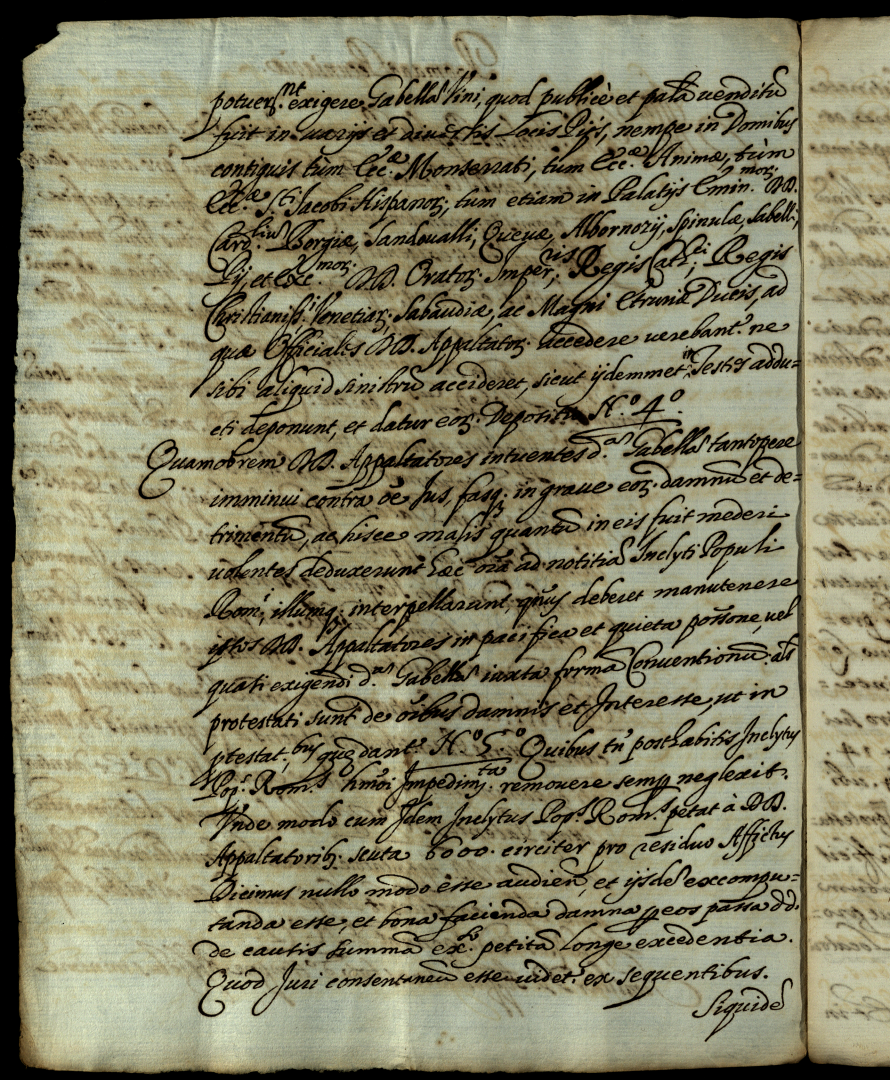 potuer.nt exigere Gabellã Vini, quod publicè et palã venditũ
fuit in varijs et diversis Locis Pijs, nempe in Domibus
contiguis tùm Ecc.æ Monserrati, tum Ecc.æ Animæ, tùm
Ecc.æ S.ti Jacobi Hispanoꝝ, tum etiam in Palatijs Emin.moꝝ DD.
Card.lium Borgiæ, Sandovalli, Quevæ, Albornozij, Spinulæ, Sabelli,
Pij, et Exc.moꝝ DD. Oratoꝝ Imper.ris, Regis Cath.ci, Regis
Christianiss.i, Venetiaꝝ, Sabaudiæ, ac Magni Etruriæ Ducis, ad
quæ Officiales DD. Appaltatoꝝ accedere verebant.r ne
sibi aliquid sinistrũ accideret, sicut ijdemmet in Testes addu=
cti deponunt, et datur eoꝝ Depositio N.º 4.º
Quamobrem DD. Appaltatores intuentes d.as Gabellas tantopere
imminui contra õe Jus, fasq; in grave eoꝝ damnũ et de=
trimentũ, ac hisce malis quantũ in eis fuit mederi
volentes deduxerunt hæc oĩa ad notitiã Inclyti Populi
Rom.i, illumq; interpellarunt, qũus deberet manutenere
ip̃os DD. Appaltatores in pacifica et quieta poss̃one, vel
quasi exigendi d.as Gabellas iuxta formã Conventionũ. als
protestati sunt de oĩbus damnis et Interesse, ut in
ptestat.bus quę dant.r N.º 5.º Quibus tñ posthabitis Inclytus
Pop.s Rom.s hmõi Impedim.ta removere semp neglexit.
Unde modo cum Idem Inclytus Pop.s Rom.s petat à DD.
Appaltatorib; scuta 6000. circiter pro residuo Affictus
Dicimus nullo modo esse audien̄, et ijsdẽ excompu=
tanda esse, et bona facienda damna p eos passa dd.
de causis summã ex.o petitã longe excedentia.
Quod Juri consentaneũ esse videt.r ex sequentibus.
Siquidẽ